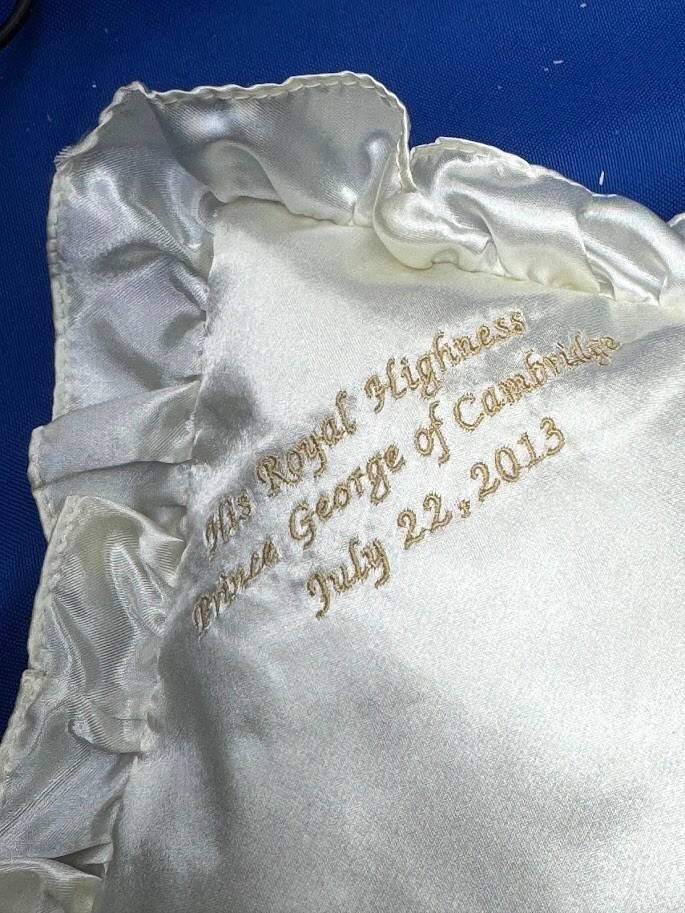 His Royal Highness
Prince George of Cambridge
July 22, 2013